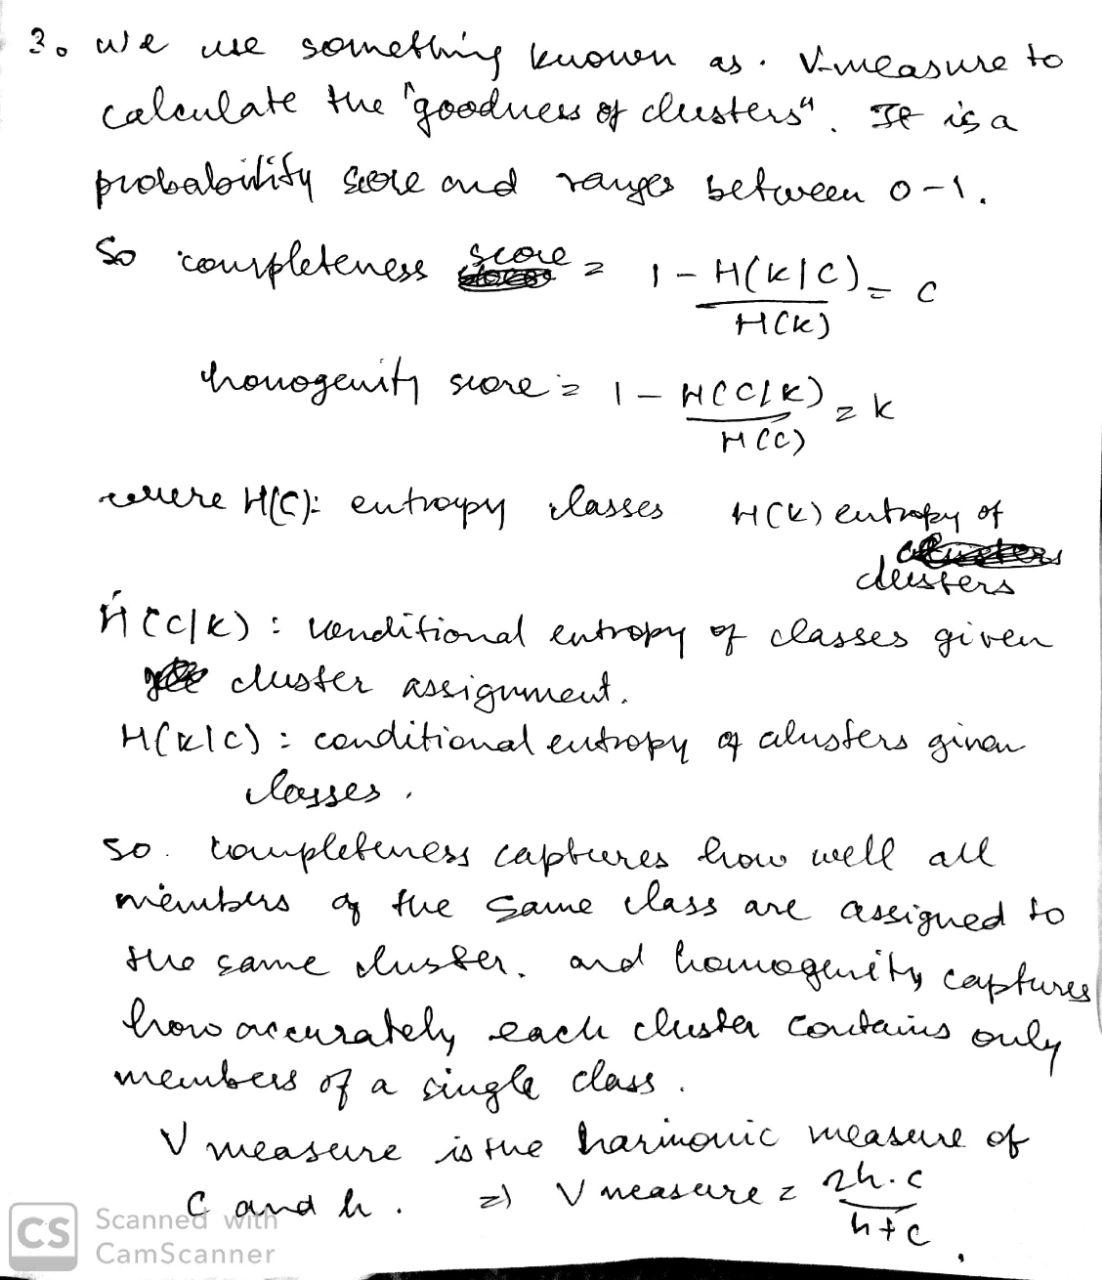 3. We use something known as. V-measure to
calculate the "goodness of clusters". It is a
probability score and ranges between 0-1.
So completeness score = 1 - H(K|C) / H(K) = c
honogenity score = 1 - H(C|K) / H(C) = k
where H(C): entropy classes H(K) entropy of
clusters
H(C|K) : conditional entropy of classes given
cluster assignment.
H(K|C) : conditional entropy of clusters given
classes.
so. completeness captures how well all
members of the same class are assigned to
the same cluster. and homogenity captures
how accurately each cluster contains only
members of a single class.
V measure is the harmonic measure of
C and h. => V measure = 2h.c / h+c.
CS Scanned with
CamScanner